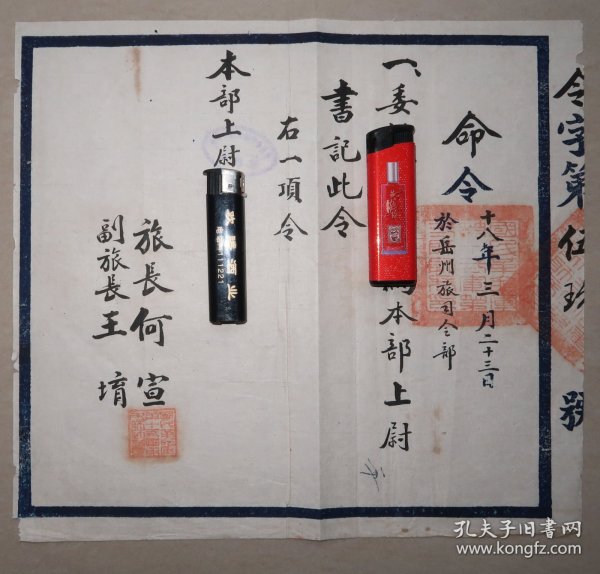 令字第伍號
命令
十八年三月二十三日
於岳州旅司令部
一、委
本部上尉
書記此令
右一項令
本部上尉
旅長何宣
副旅長王堉
111221
孔夫子旧书网
www.kongfz.com